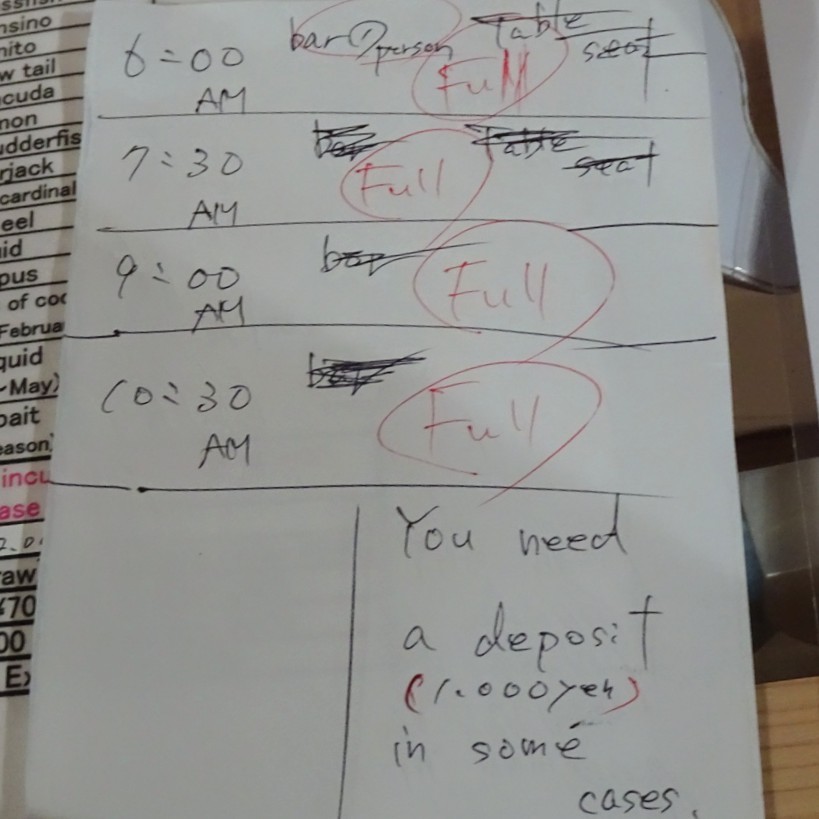 nsino
nito
w tail
cuda
mon
udderfis
rjack
cardinal
eel
uid
pus
of coc
Februa
quid
~May)
bait
eason)
incu
ease
2.0
raw
¥70
00
E
6:00 AM bar ① person Table seat Full
7:30 AM bar Full Table seat
9:00 AM bar Full
10:30 AM bar Full
You need
a deposit
(1.000yen)
in some
cases.